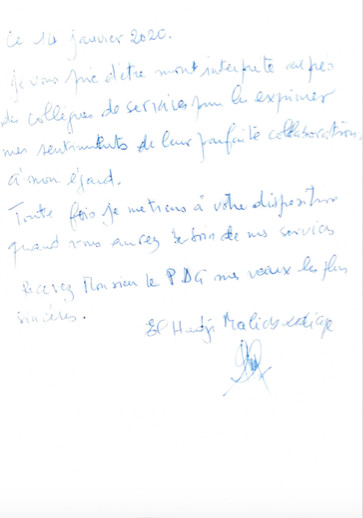 Ce 14 janvier 2020.
Je vous prie d'être mont interprete auprès
des collègues de services pour les exprimer
mes sentiments de leur parfaite collaboration
à mon égard.
Toute fois je me tiens à votre disposition
quand vous aurez besoin de mes services
Monsieur le PDG mes vœux les plus
sincères.
El Hadji Malick